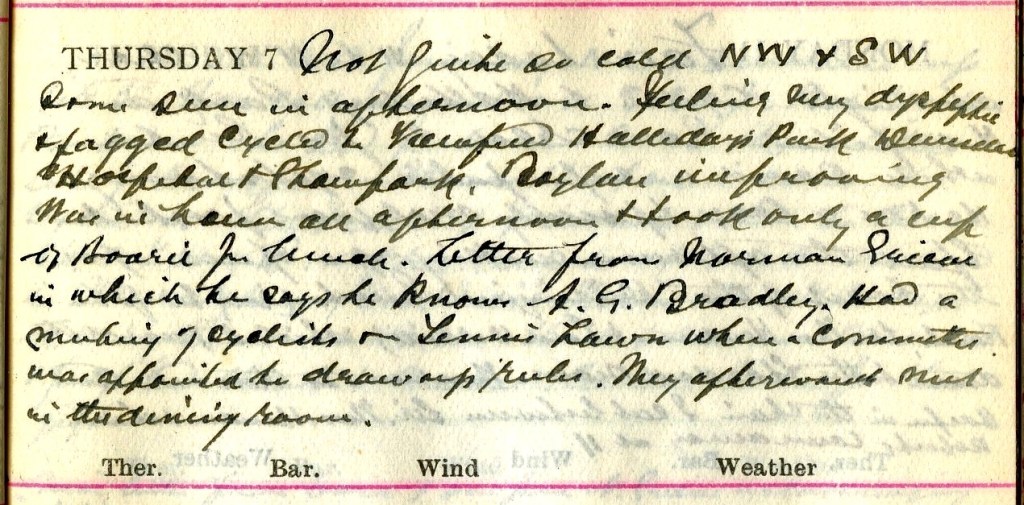 THURSDAY 7 Not Quite so cold NW & SW
Some sun in afternoon. Feeling very dyspeptic
& fagged Cycled to Halliday's Park
Hospital & Thornpark. Boylan improving
Was in house all afternoon & took only a cup
of Bovril for lunch. Letter from Norman
in which he says he knows A. G. Bradley. Had a
meeting of cyclists on Tennis Lawn when a Committee
was appointed to draw up rules. They afterwards met
in the dining room.
Ther. Bar. Wind Weather